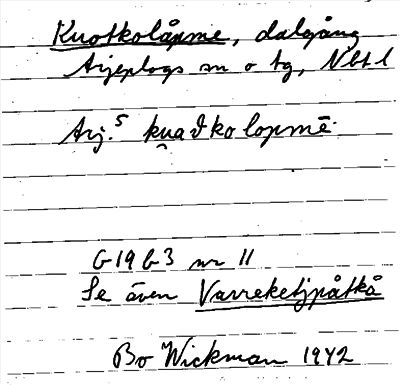 Kuotkolåpme, dalgång
Arjeplogs sn o tg, Nbtl
Arj.⁵ ku̯aϑkolopmē
G 19 b 3 nr 11
Se även Varreketjpåtkå
Bo Wickman 1942